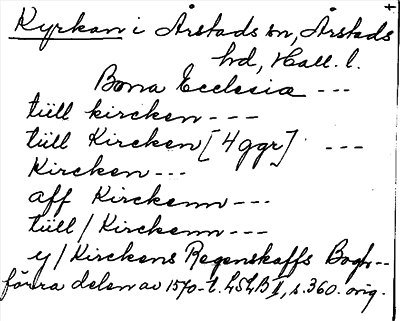 Kyrkan i Årstads sn, Årstads
hd, Hall. l.
Bona Ecclesia ---
tüll kircken ---
tüll Kircken [4 ggr] ---
Kircken ---
aff Kirckenn ---
tüll / Kirckenn ---
y / Kirckens Regenskaffs Bogh--
förra delen av 1570-t. LSLB I, s. 360. orig.